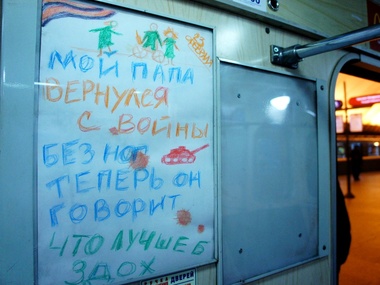 МОЙ ПАПА
ВЕРНУЛСЯ
С ВОЙНЫ
БЕЗ НОГ
ТЕПЕРЬ ОН
ГОВОРИТ
ЧТО ЛУЧШЕ Б
ЗДОХ
ДВЕРЕЙ